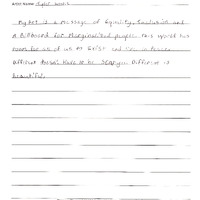 Artist Name:
My Art is a message of Equality, Inclusion and
A Billboard for Marginalized people. This World has
room for all of us to Exist and live in Peace.
Different doesn't have to be Scary. Different is
beautiful.